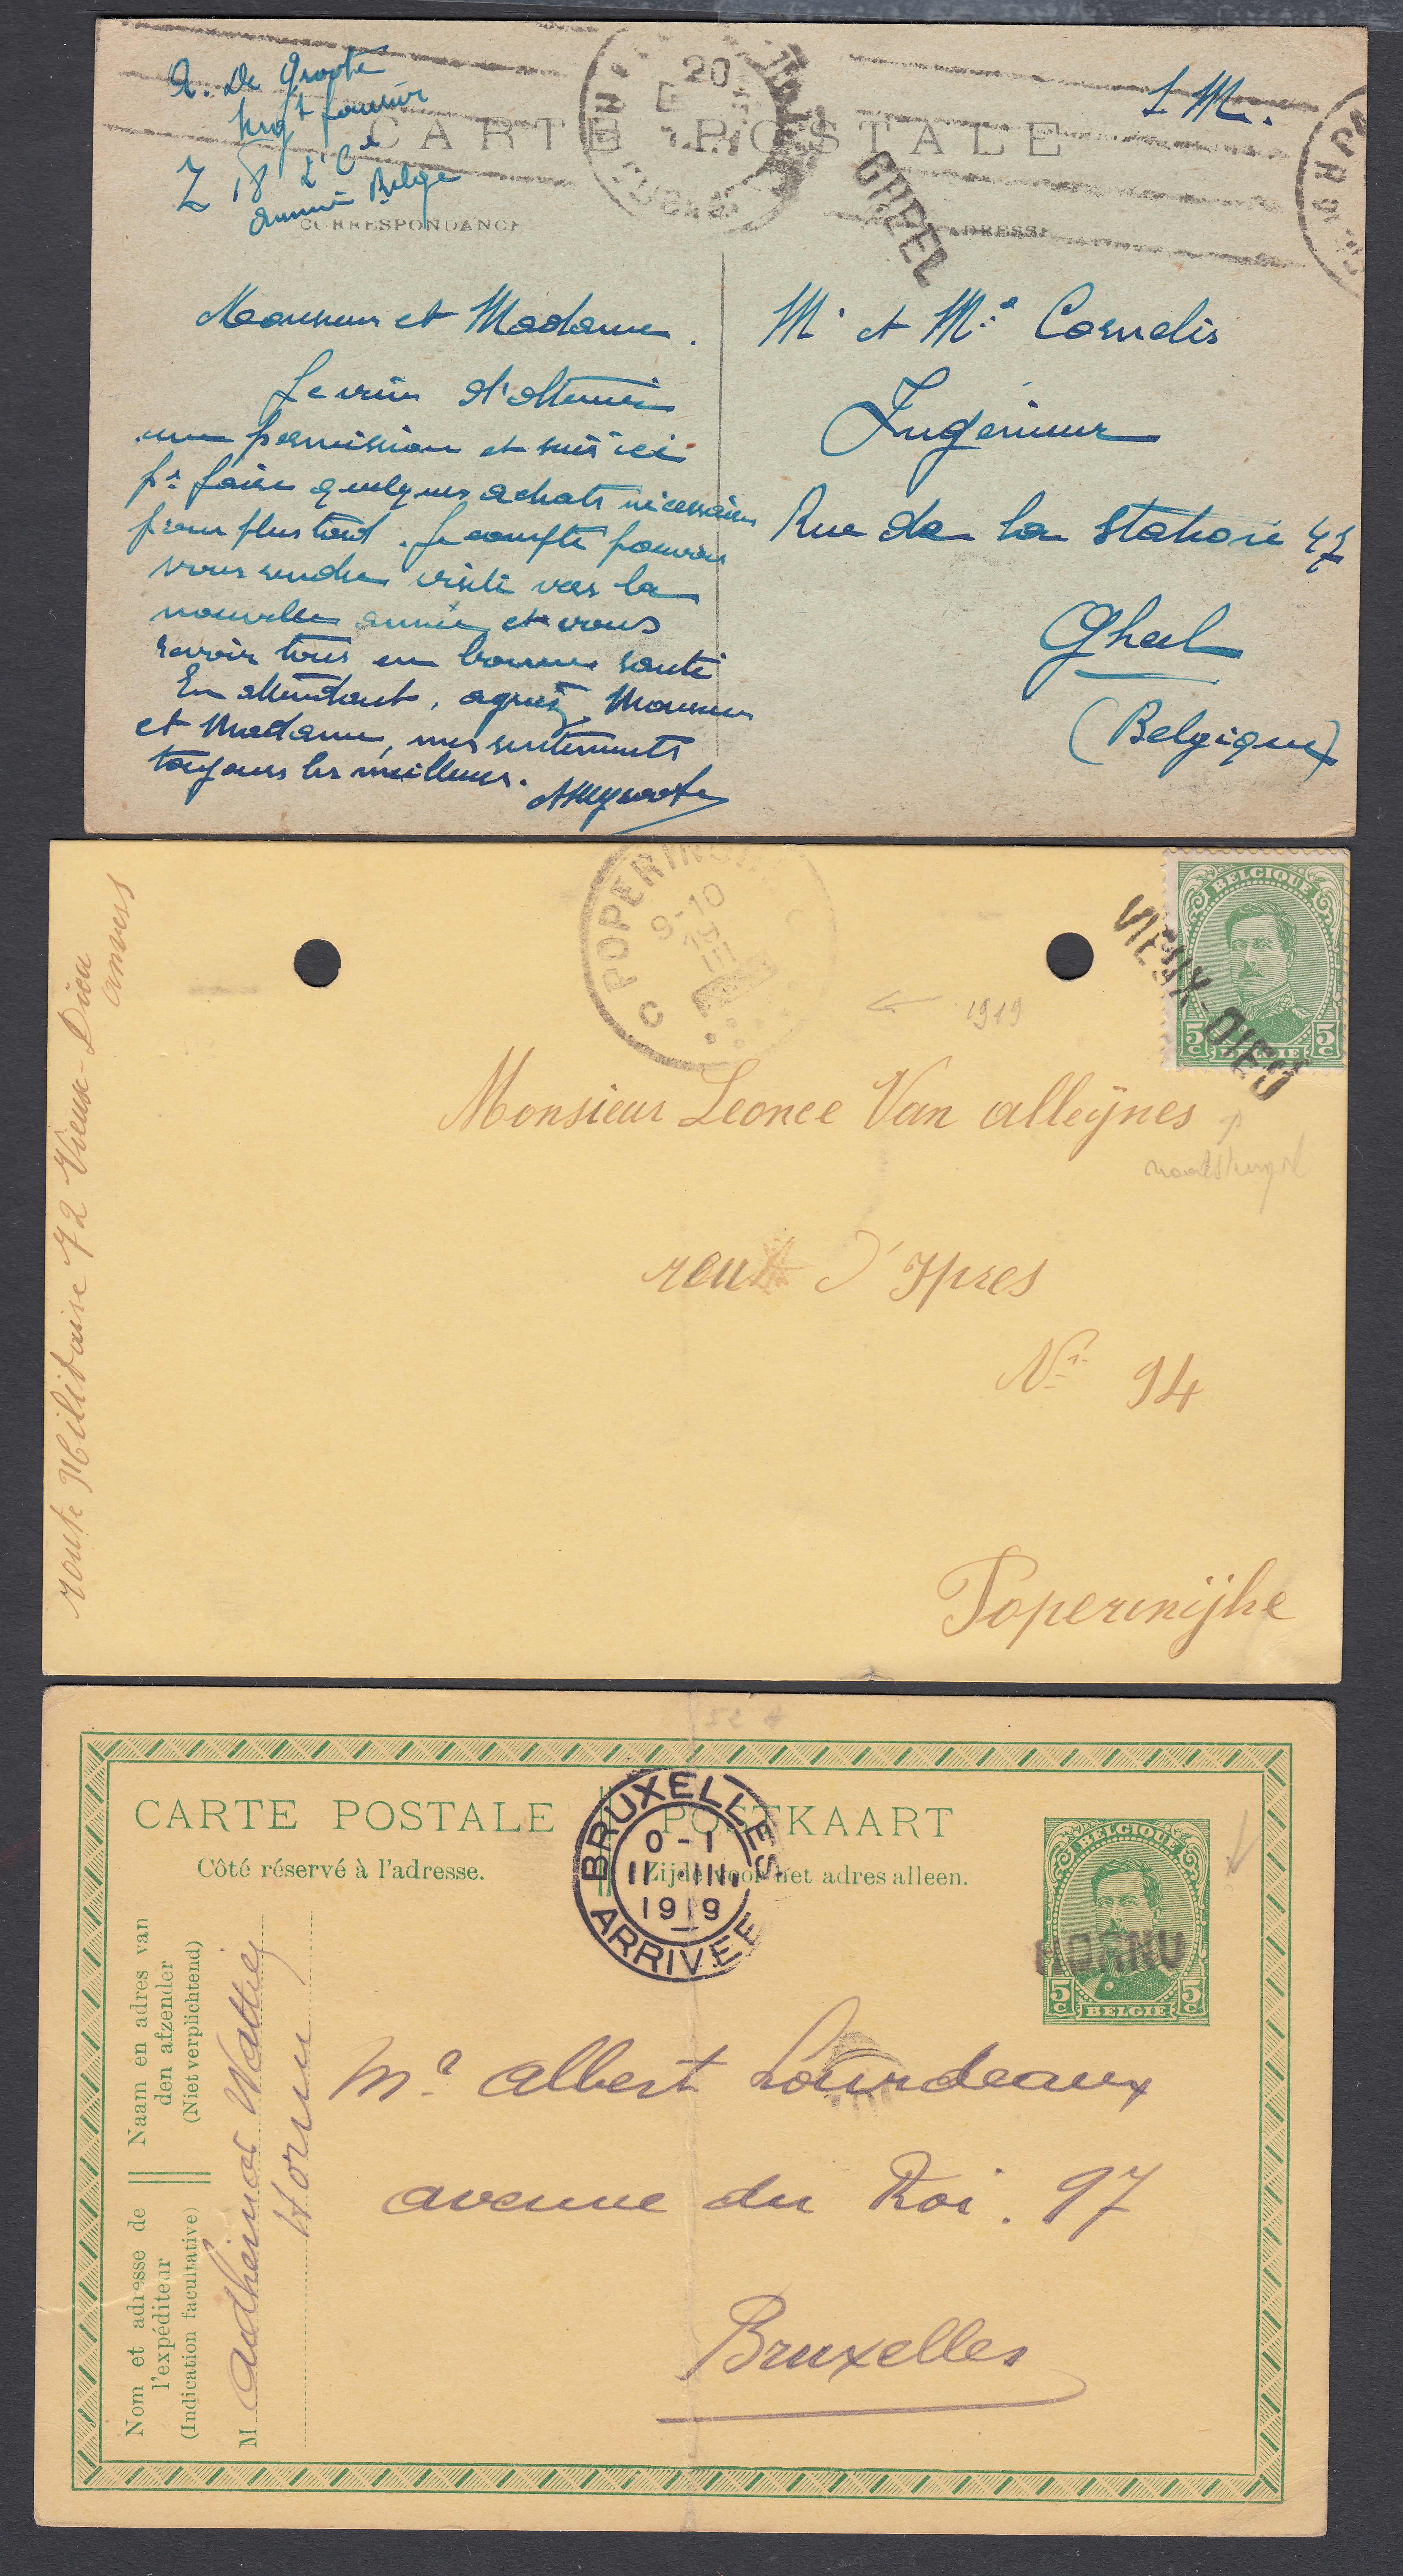 A. De Groote
Z 18
armée Belge
S.M.
20
CARTE POSTALE
CORRESPONDANCE
ADRESSE
GHEEL
Monsieur et Madame.
Je viens d'obtenir
une permission et suis ici
pr faire quelques achats nécessaires
pour plus tard. Je compte pouvoir
vous rendre visite vers la
nouvelle année et vous
revoir tous en bonne santé
En attendant, agréez, Monsieur
et Madame, mes sentiments
toujours les meilleurs.
Mr et Me Cornelis
Ingénieur
Rue de la Station 47
Gheel
(Belgique)
C POPERINGHE C
9-10
19
III
BELGIQUE
5c 5c
BELGIE
VIEUX-DIEU
1919
noodstempel
route Militaire 72 Vieux-Dieu
anvers
Monsieur Leonce Van alleÿnes
reu d'Ypres
Nr 94
Poperinijhe
CARTE POSTALE
POSTKAART
Côté réservé à l'adresse.
Zijde voor het adres alleen.
BRUXELLES
0-1
11 III
1919
ARRIVEE
BELGIQUE
HORNU
5c 5c
BELGIE
Naam en adres van
den afzender
(Niet verplichtend)
Nom et adresse de
l'expéditeur
(Indication facultative)
M Adhémar Wattiez
Hornu
Mr Albert Lourdeaux
avenue du Roi. 97
Bruxelles